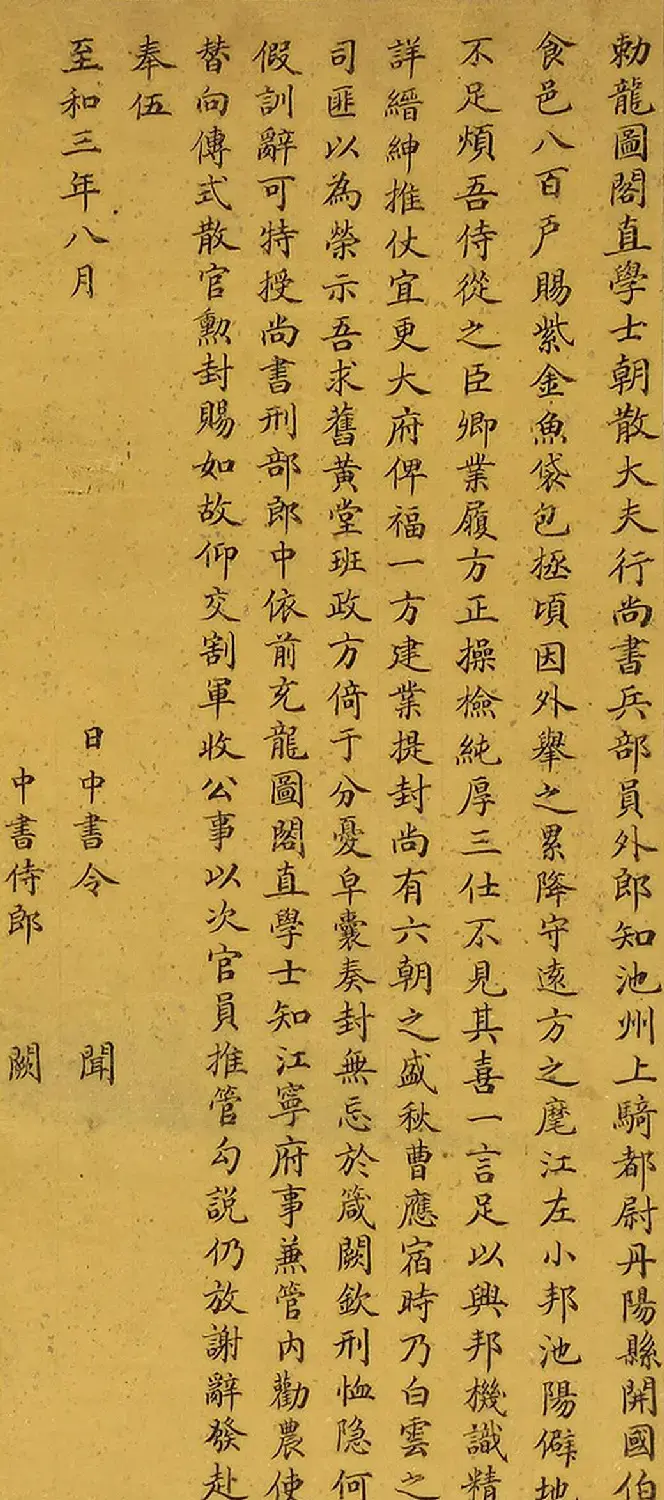 勅龍圖閣直學士朝散大夫行尚書兵部員外郎知池州上騎都尉丹陽縣開國伯
食邑八百戸賜紫金魚袋包拯頃因外舉之累降守遠方之麾江左小邦池陽僻地
不足煩吾侍從之臣卿業履方正操檢純厚三仕不見其喜一言足以興邦機識精
詳縉紳推仗宜更大府俾福一方建業提封尚有六朝之盛秋曹應宿時乃白雲之
司匪以為榮示吾求舊黃堂班政方倚于分憂皁囊奏封無忘於箴闕欽刑恤隐何
假訓辭可特授尚書刑部郎中依前充龍圖閣直學士知江寧府事兼管内勸農使
替向傳式散官勲封賜如故仰交割軍收公事以次官員推管勾說仍放謝辭發赴
奉伍
至和三年八月
日中書令 聞
中書侍郎 闕